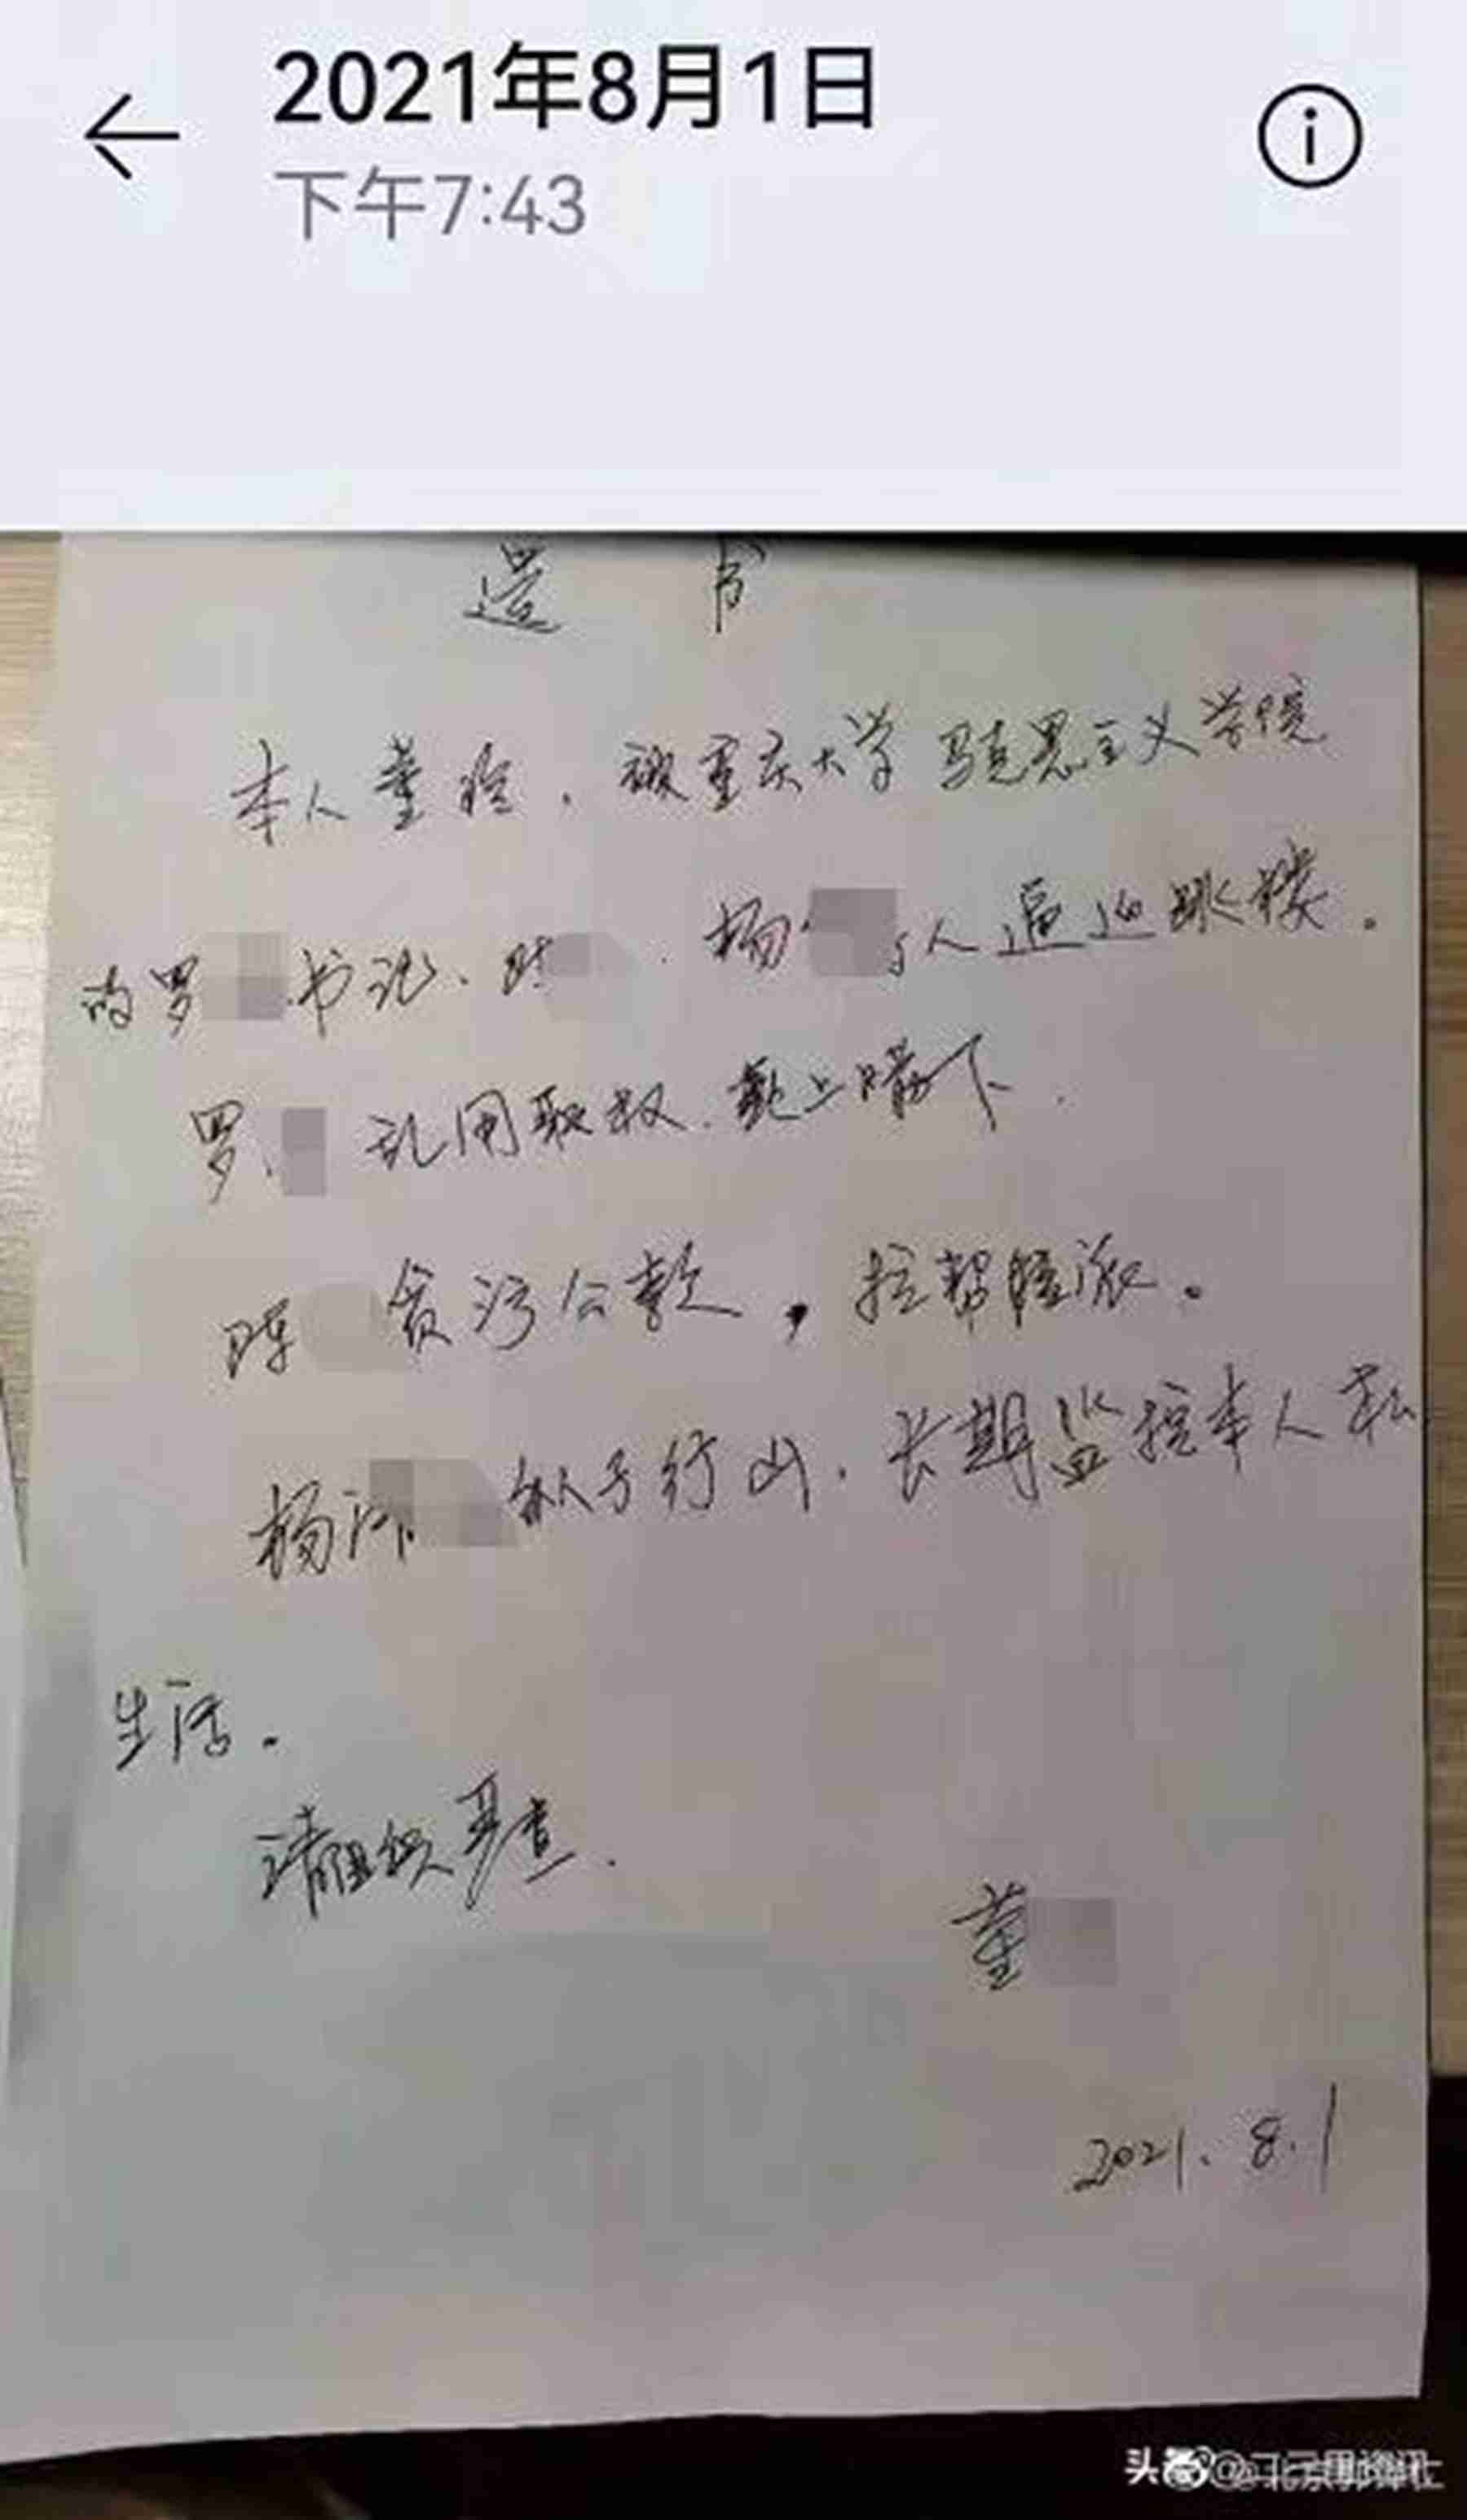 2021年8月1日
下午7:43
遗书
本人董,被重庆大学马克思主义学院
的罗 书记、陈 、杨 人逼迫跳楼。
罗 乱用职权、欺上瞒下.
陈 贪污公款,拉帮结派。
杨 纵子行凶.长期监控本人私
生活。
请组织严查.
董
2021.8.1
头条